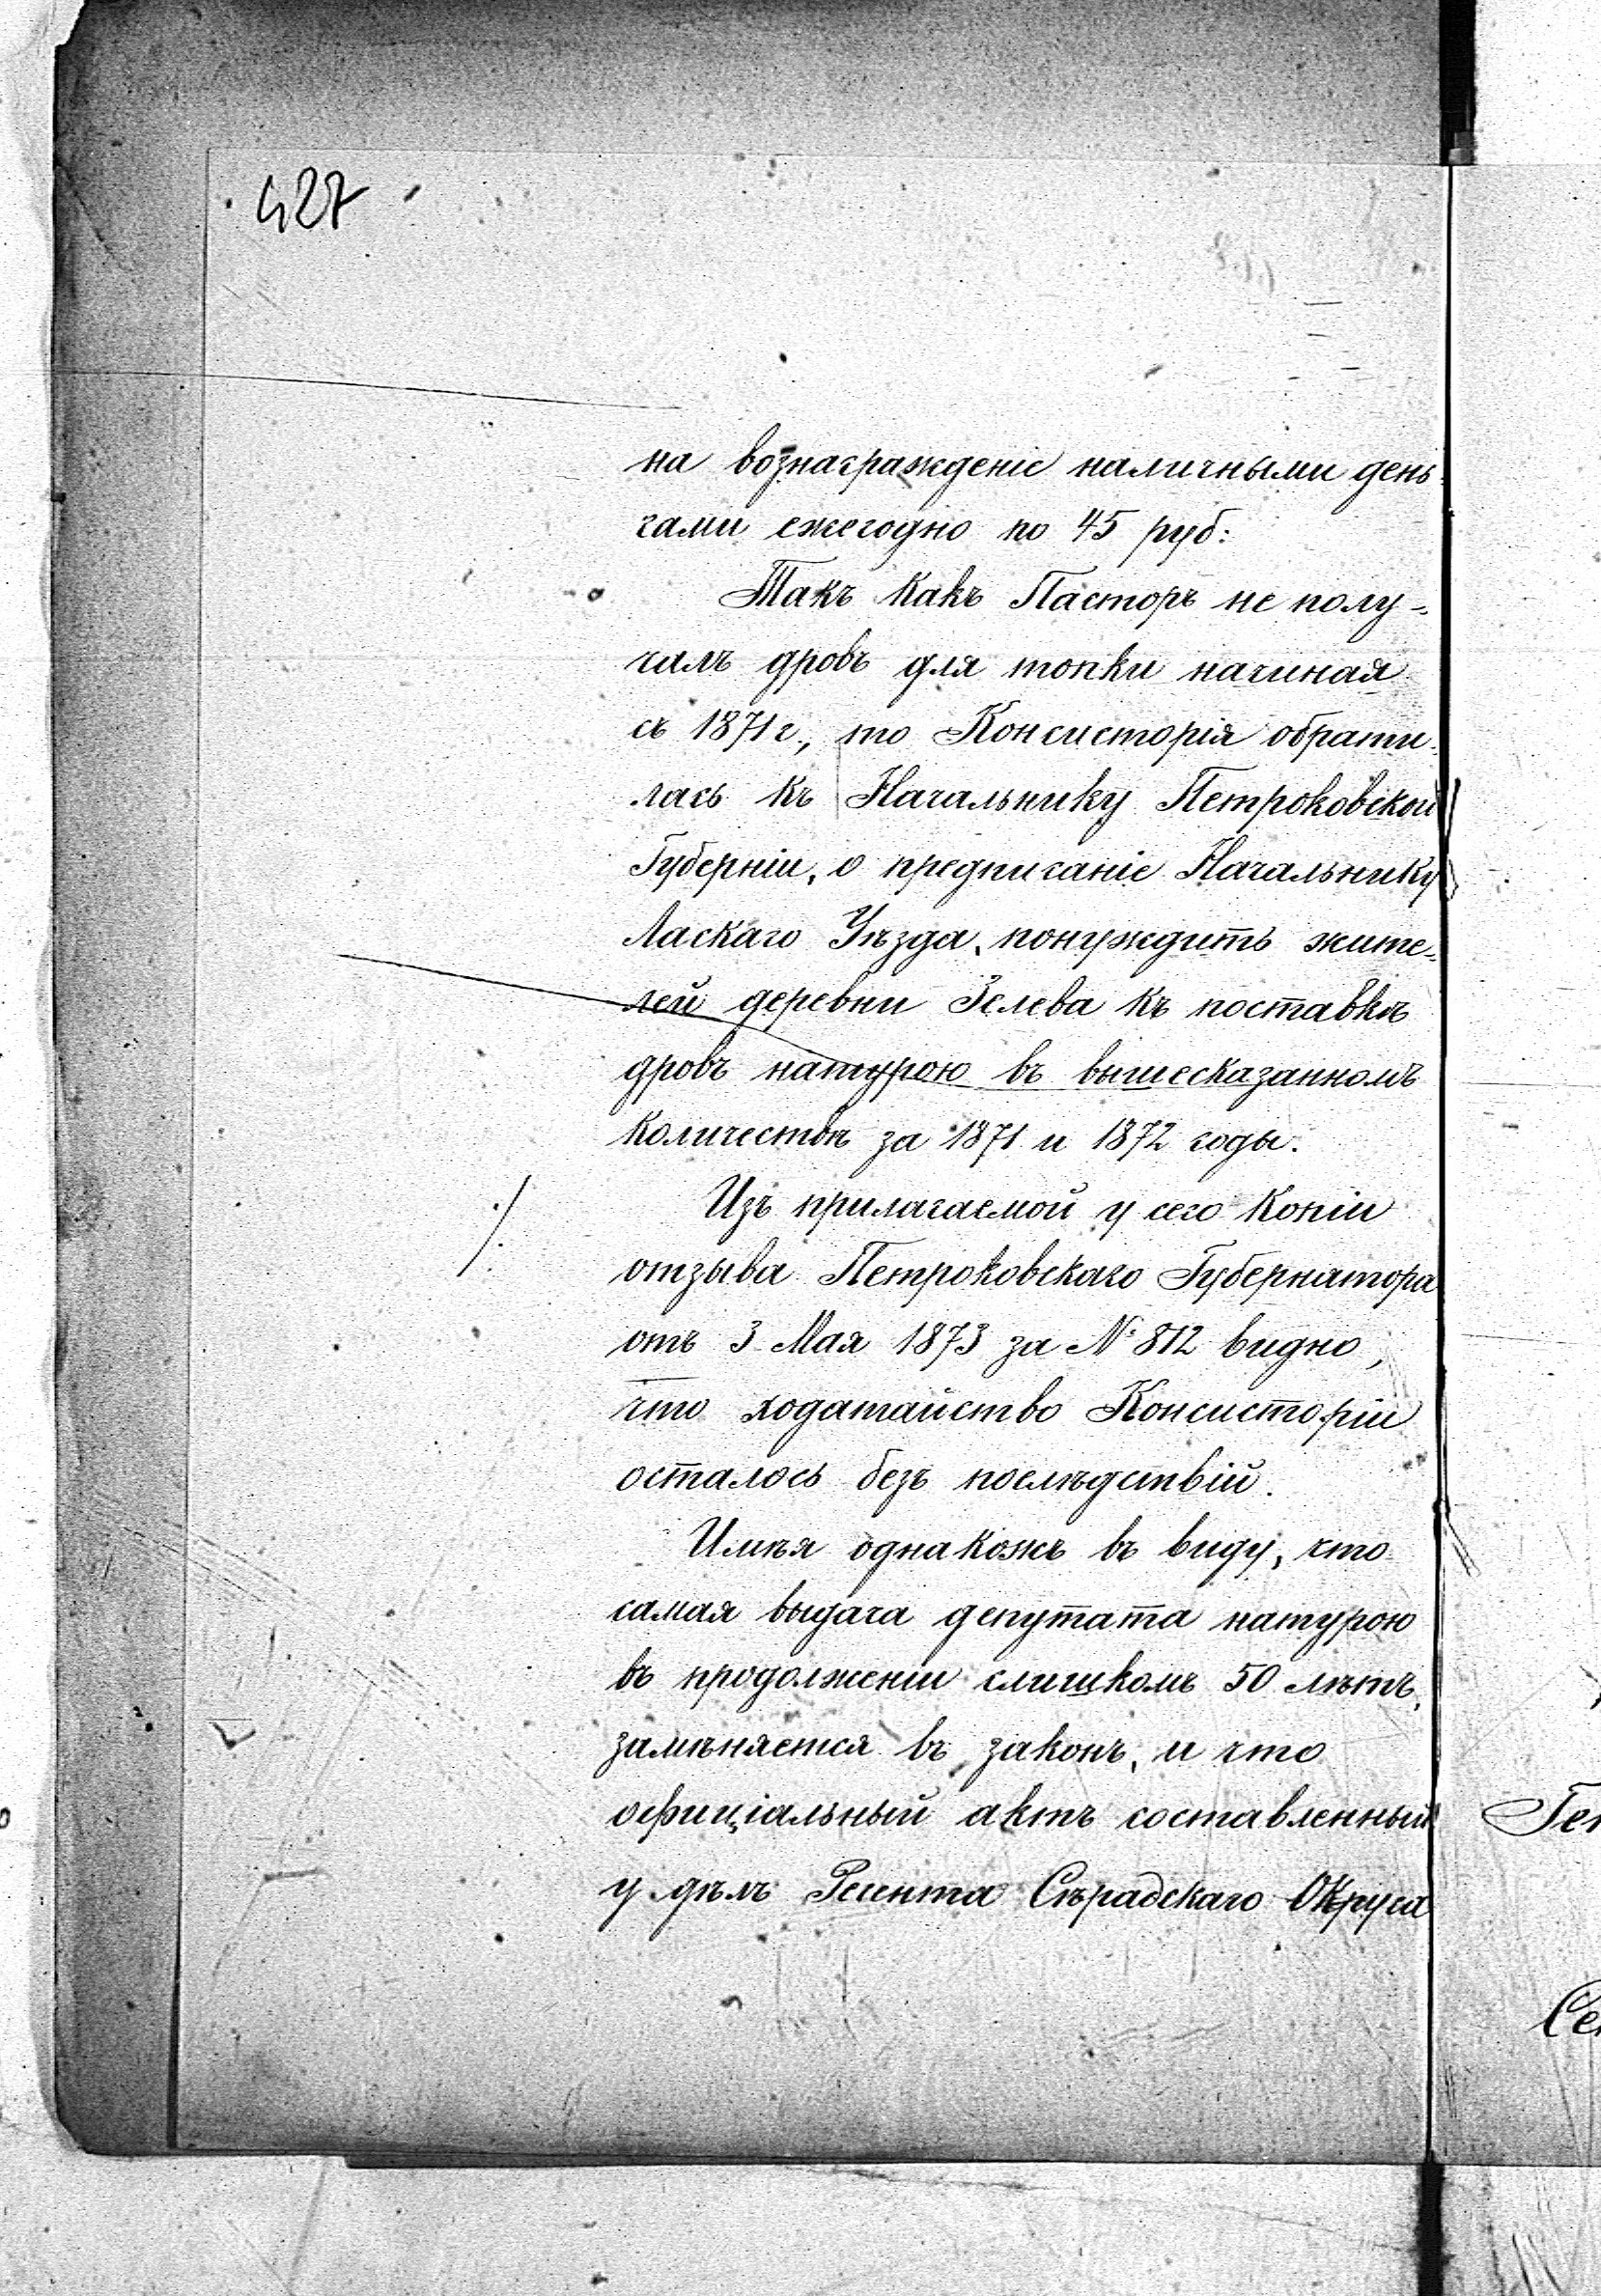 427
на вознагражденіе наличными день-
гами ежегодно по 45 руб:
Такъ какъ Пасторъ не полу-
чалъ дровъ для топки начиная
съ 1871 г., то Консисторія обрати-
лась къ Начальнику Петроковской
Губерніи, о предписаніе Начальнику
Ласкаго Уѣзда, понуждить жите-
лей деревни Зелева къ поставкѣ
дровъ натурою въ вышесказанномъ
количествѣ за 1871 и 1872 годы.
Изъ прилагаемой у сего копіи
отзыва Петроковскаго Губернатора
отъ 3 Мая 1873 за № 812 видно,
что ходатайство Консисторіи
осталось безъ послѣдствій.
Имѣя однакожъ въ виду, что
самая выдача депутата натурою
въ продолженіи слишкомъ 50 лѣтъ,
замѣняется въ законъ, и что
офиціальный актъ составленный
у дѣлъ Регента Сѣрадскаго Округа
Ген
Се